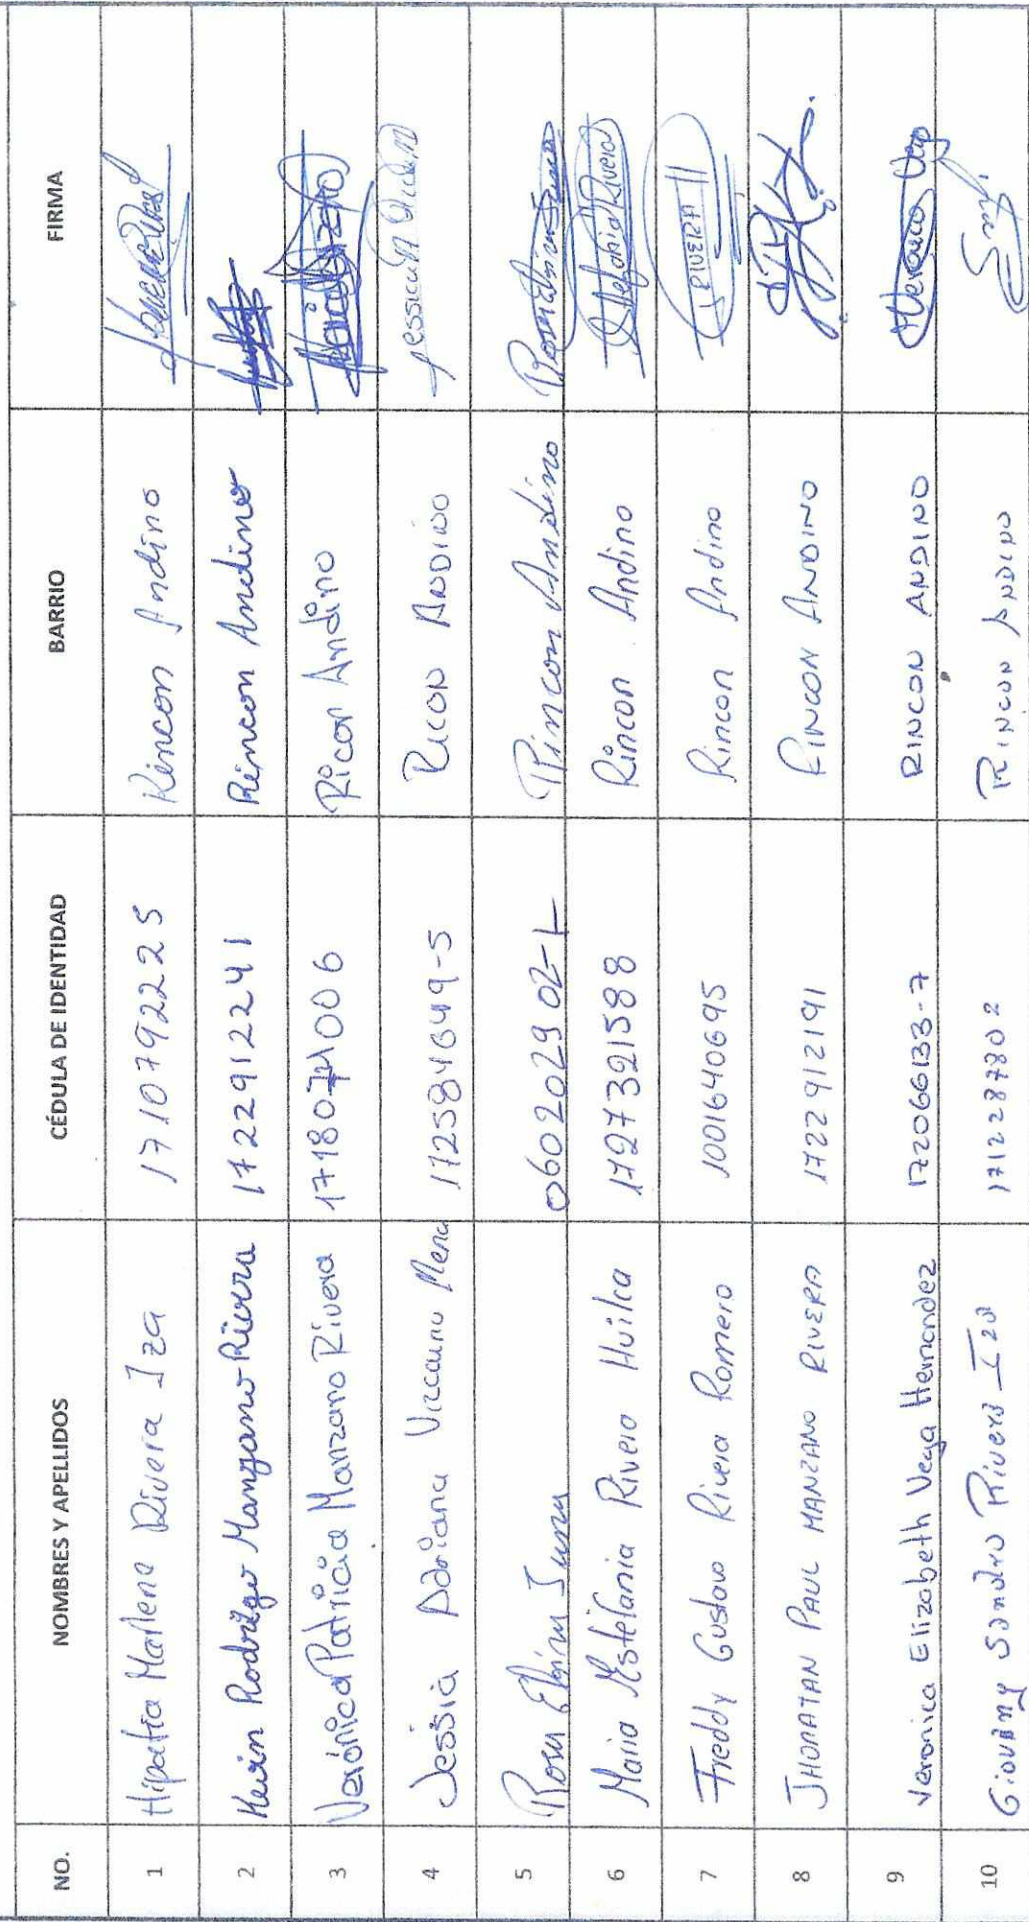 NO. NOMBRES Y APELLIDOS CÉDULA DE IDENTIDAD BARRIO FIRMA
1 Hipatia Marlene Rivera Iza 1710792225 Rincon Andino
2 Kevin Rodrigo Manzano Rivera 1722912241 Rincon Andino
3 Verónica Patricia Manzano Rivera 1718074006 Ricon Andino
4 Jessia Adriana Vizcaino Mena Ricon Andino
5 Rosa Elvira 060202902-1 Rincon Andino
6 Maria Estefania Rivera Huilca 1727321588 Rincon Andino Estefania Rivera
7 Freddy Gustavo Rivera Romero 1001640695 Rincon Andino RIVERA
8 JHONATAN PAUL MANZANO RIVERA 1722912191 RINCON ANDINO
9 Veronica Elizabeth Vega Hernandez 172066133-7 RINCON ANDINO Veronica Vega
10 Giovany Sandro Rivera Iza 1712287802 RINCON ANDINO